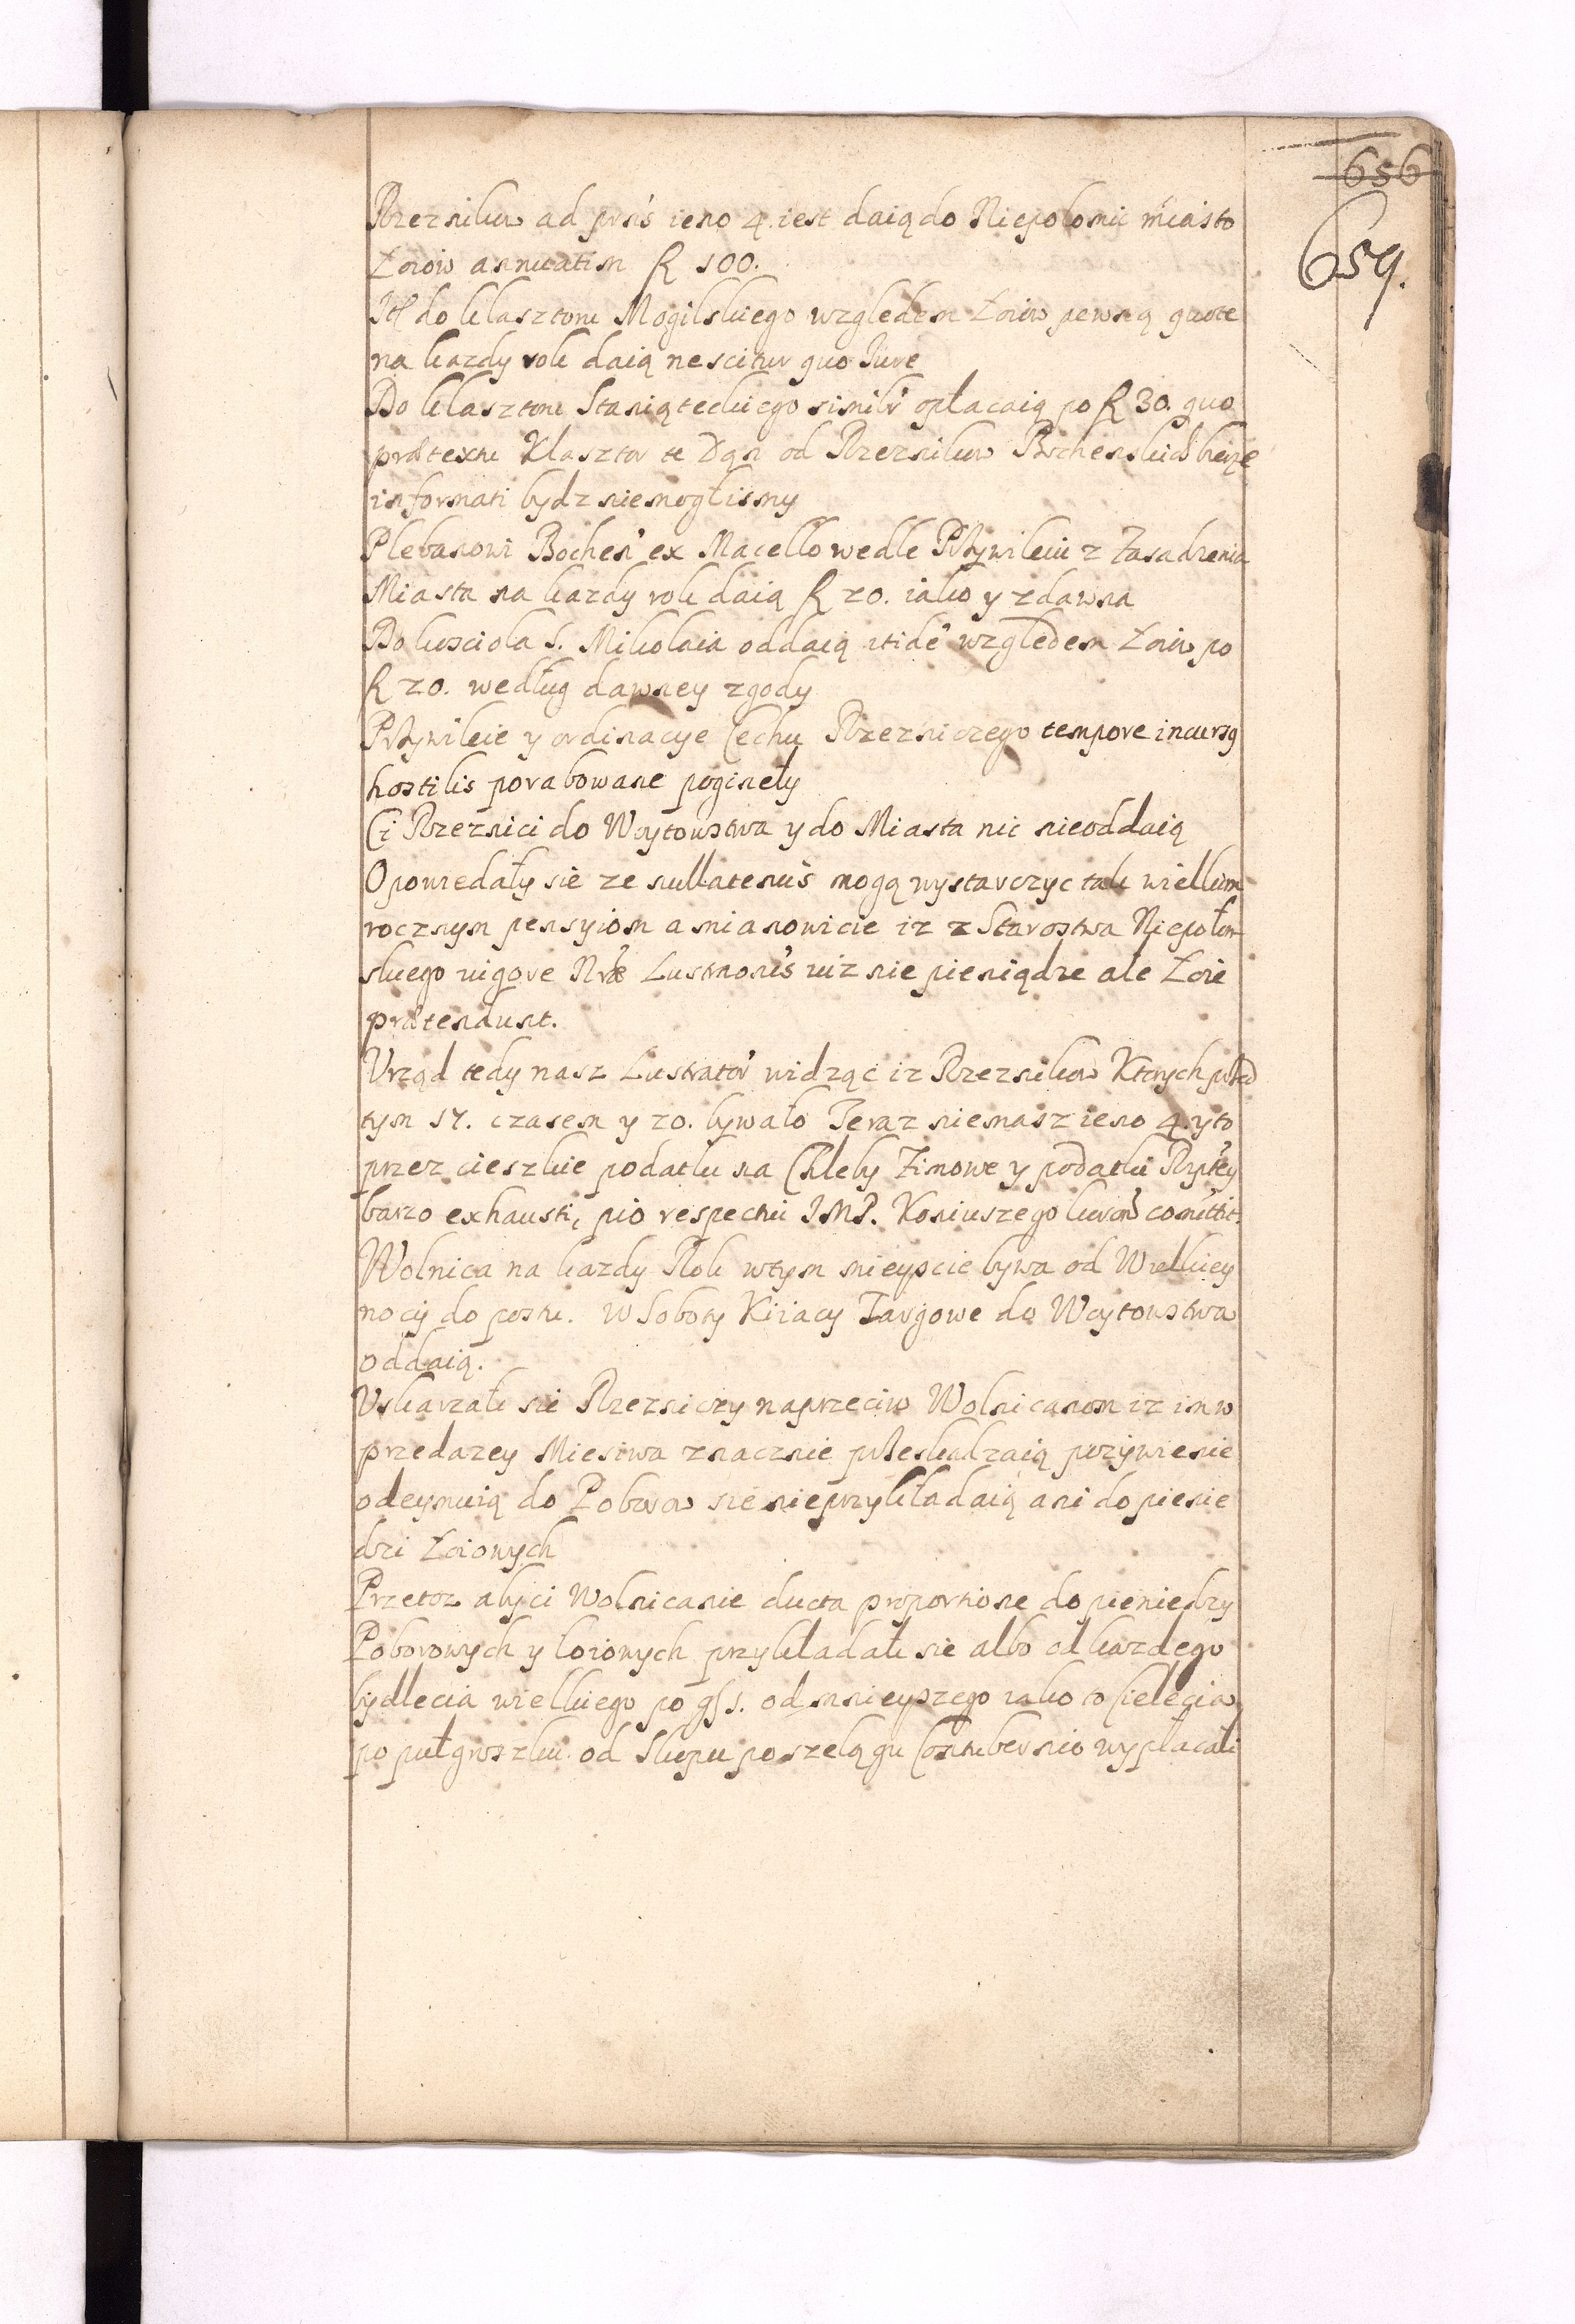 656
659.
Rzeznikow ad prns ieno 4. iest daią do Niepolomic miasto
Łoiow annuatim R 100.
It do klasztoru Mogilskiego względem Łoiow pewną quote
na kazdy rok daią nescitur quo Iure
Do klasztoru Staniąteckiego similr opłacaią po R 30. quo
prætextu Klasztor te Dań od Rzeznikow Bochenskich bierze
informati bydz niemoglismy
Plebanowi Bochen ex Macello wedle Przywileiu z Zasadzenia
Miasta na kazdy rok daią R 20. iako y zdawna
Do kosciola S. Mikolaia oddaią itide względem Łoiow po
R 20. według dawney zgody
Przywileie y ordinacye Cechu Rzezniczego tempore incursq
hostilis porabowane poginely
Ci Rzeznici do Woytowstwa y do Miasta nic nieoddaią
Opowiedały sie ze nullatenus mogą wystarczyc tak wielkim
rocznym pensyiom a mianowicie iz z Starostwa Niepołom
skiego vigore Nræ Lustronis iuz nie pieniądze ale Łoie
prætendunt.
Vrząd tedy nasz Lustrator widząc iz Rzeznikow Ktorych przed
tym 17. czasem y 20. bywało Teraz niemasz ieno 4. y to
przez cieszkie podatku na Chleby Zimowe y podatki Rzptey
barzo exhausti, pio respectui IMP. Koniuszego koron comittit.
Wolnica na kazdy Rok wtym mieyscie bywa od Wielkiey
nocy do postu. W Soboty Kiiacy Targowe do Woytowstwa
oddaią.
Vskarzali sie Rzezniczy naprzeciw Wolnicanom iz im w
przedazey Miesiwa znacznie przeskadzaią pozywienie
odeymuią do Poborow sie nieprzykładaią ani do pienie
dzi Łoiowych
Przetoz aby ci Wolnicanie ducta proportione do pieniedzy
Poborowych y łoiowych przykładali sie albo od kazdego
bydlecia wielkiego po gs 1. od mnieyszego iako to Cielęcia
po puł groszku. od Skopu po szelągu Contubernio wypłacali